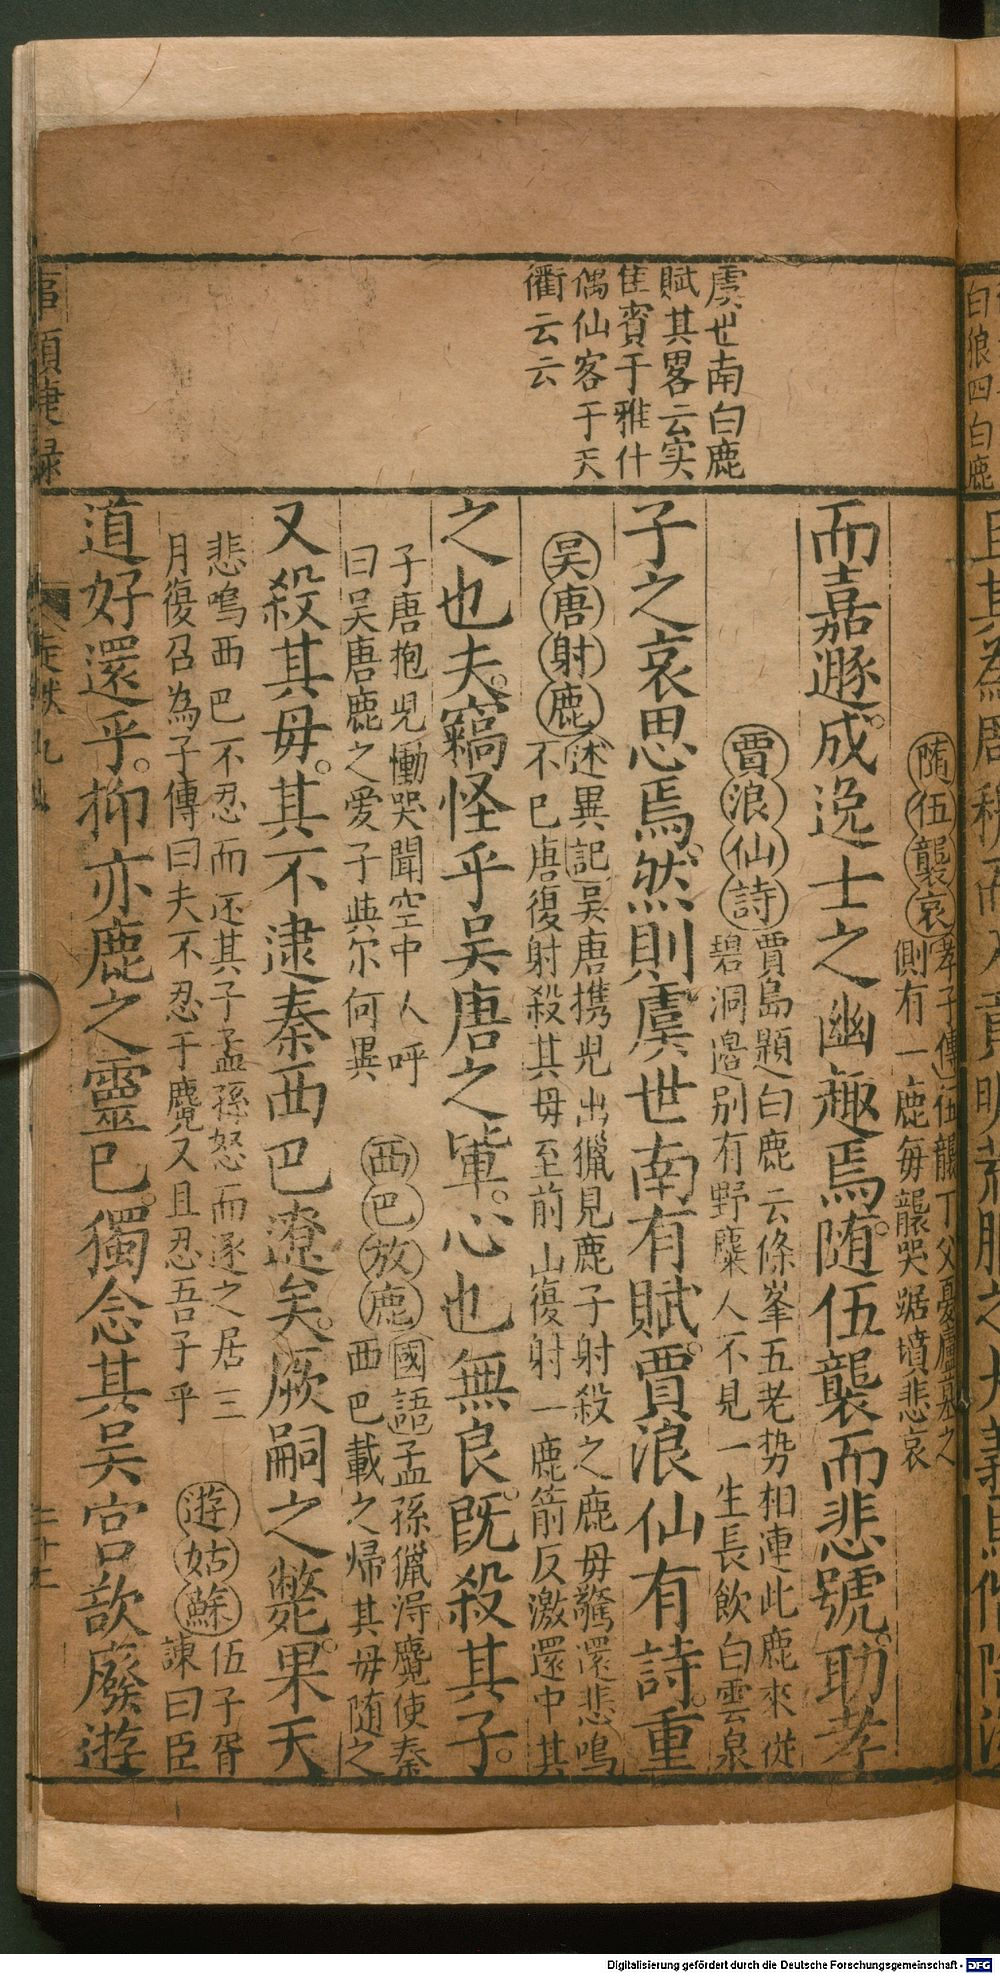 虞世南白鹿
賦其畧云实
隹賓于雅什
偶仙客于天
衢云云
隨伍襲哀孝子傳伍襲丁父憂廬墓之
側有一鹿每襲哭踞墳悲哀
而嘉遯成逸士之幽趣焉隨伍襲而悲號助孝
賈浪仙詩賈島題白鹿云條峯五老势相連此鹿來従
碧洞邉别有野麋人不見一生長飲白雲泉
子之哀思焉然則虞世南有賦賈浪仙有詩重
吴唐射鹿述異記吴唐携兒出獵見鹿子射殺之鹿母驚還悲鳴
不已唐復射殺其母至前山復射一鹿箭反激還中其
之也夫竊怪乎吴唐之軰心也無良既殺其子
子唐抱兒慟哭聞空中人呼
曰吴唐鹿之愛子與尔何異
西巴放鹿國語孟孫獵淂麑使秦
西巴載之帰其母随之
又殺其母其不逮秦西巴遼矣厥嗣之斃果天
悲鳴西巴不忍而还其子孟孫怒而逐之居三
月復召為子傳曰夫不忍于麑又且忍吾子乎
遊姑蘇伍子胥
諫曰臣
道好還乎抑亦鹿之靈已獨念其吴宫歆廢遊
白狼四白鹿
Digitalisierung gefördert durch die Deutsche Forschungsgemeinschaft - DFG